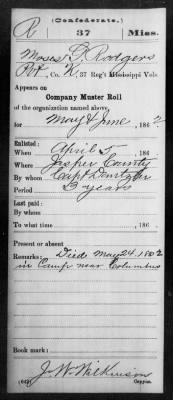 (Confederate.)
R 37 Miss.
Moses G. Rodgers
Pvt, Co. K, 37 Reg't Mississippi Vols.
Appears on
Company Muster Roll
of the organization named above,
for May & June, 186 2
Enlisted:
When April 5, 186
Where Jasper County
By whom Capt
Period 3 years
Last paid:
By whom
To what time , 186 .
Present or absent
Remarks: Died May 24. 1862
in Camp near Columbus
Book mark:
J. W. Wilkinson
(642) Copyist.